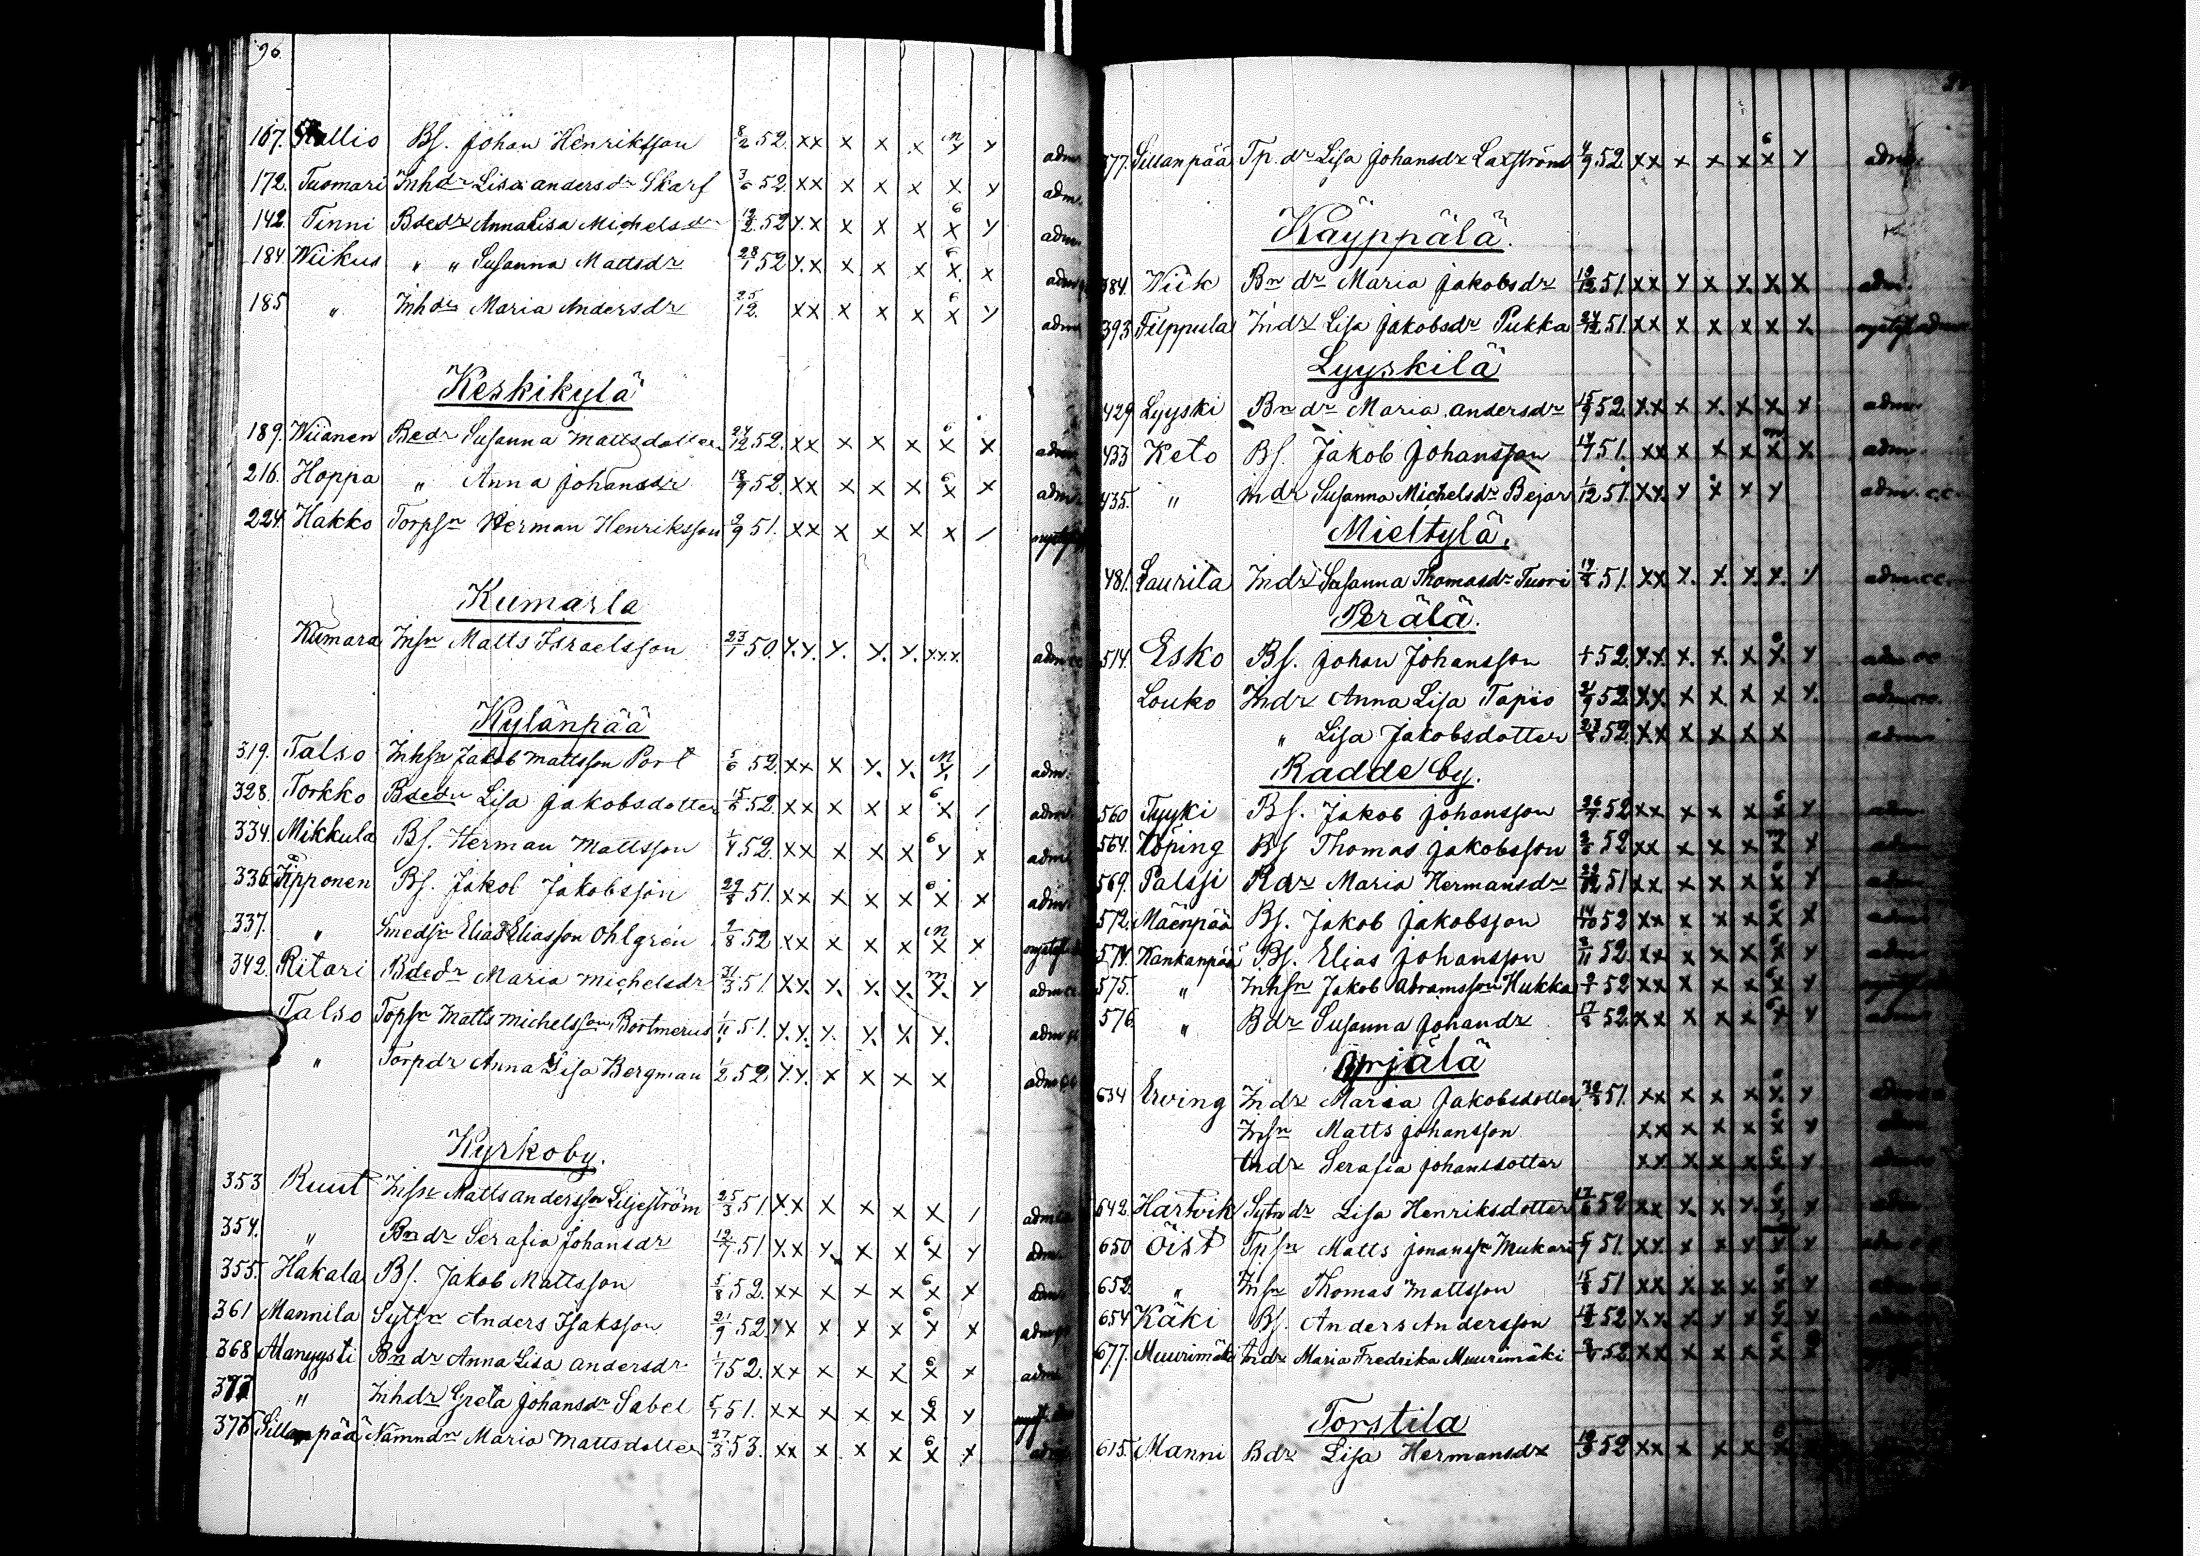 96.
167. Kallio Bs. Johan Henriksson 8/2 52. xx x x x x x adm.
172. Tuomari Inhdr Lisa Andersdr Skarf 3/6 52. xx x x x x x adm.
142. Tinni Bdedr Anna Lisa Michelsdr 19/2 52 x.x x x x x x adm.
184. Wiikus " " Susanna Mattsdr 28/1 52 x.x x x x x x adm
185 " Inhdr Maria Andersdr 25/12. xx x x x x x adm
Keskikylä
189. Wiianen Bedr Susanna Mattsdotter 24/12 52. xx x x x x x adm
216. Hoppa " Anna Johansdr 18/9 52. xx x x x x x adm.
224. Hakko Torpsn Herman Henriksson 2/9 51. xx x x x x /
Kumarla
Kumara Insn Matts Israelsson 23/1 50. x.x. x. x. x. x.x.x. adm cc
Kylänpää
319. Talso Inhsn Jakob Mattsson Port 5/6 52. xx x x. x. x. / adm.
328. Torkko Bdedr Lisa Jakobsdotter 15/6 52. xx x x x x / adm.
334. Mikkula Bs. Herman Mattsson 1/4 52. xx x x x x x adm
336. Jipponen Bs. Jakob Jakobsson 29/8 51. xx x x x x x adm.
337. " Smedsn Elias Eliasson Ohlgren 2/8 52 xx x x x x x
342. Ritari Bdedr Maria Michelsdr 31/3 51. xx. x. x. x. x. x adm cc
Talso Topsn Matts Michelsson Bortmerus 1/11 51. x.x. x. x. x. x. adm
" Torpdr Anna Lisa Bergman 1/2 52. x.x. x x x x adm
Kyrkoby.
353 Ruut Insn Matts Andersson Liljeström 25/3 51. xx x x x x / adm cc
354. " Bndr Serafia Johansdr 19/7 51 xx x. x x x x adm.
355. Hakala Bs. Jakob Mattsson 5/8 52. xx x x x x x adm
361 Mannila Sytsn Anders Isaksson 21/9 52. xx x x x x x adm
368 Alanyysti Bndr Anna Lisa Andersdr 1/7 52. xx x x x x x adm
" Inhdr Greta Johansdr Sabel 5/1 51. xx x x x x x
376 Sillanpää Nämndm Maria Mattsdotter 27/3 53. xx x x x x x adm
377. Sillanpää Tp. dr Lisa Johansdr Laxström 4/9 52. xx x x x x x adm.
Käyppälä.
384. Wiik Bn dr Maria Jakobsdr 19/12 51. xx x x x. x. x adm.
393 Filppula Indr Lisa Jakobsdr Pukka 24/12 51. xx x x x x x.
Lyyskilä
429 Lyyski Bn dr Maria Andersdr 15/9 52. x.x x x. x x. x adm
433 Keto Bs. Jakob Johansson 14/7 51. xx x x x x x adm.
435. " indr Susanna Michelsdr Bejar 1/12 51. xx x x x x adm. c.c.
Mieltylä.
481. Laurila Indr Susanna Thomasdr Tuori 14/8 51. xx x. x. x. x. x adm. cc.
Perälä.
514. Esko Bs. Johan Johansson 52. x.x x. x. x x. x adm cc
Louko Indr Anna Lisa Tapio 21/9 52. xx x x x x x. adm cc.
" Lisa Jakobsdotter 52. xx x x x x adm
Radde by.
560 Tyyki Bs. Jakob Johansson 26/7 52 xx x x x x x adm
564. Köping Bs Thomas Jakobsson 52 xx x x x x x adm
569. Palssi Rdr Maria Hermansdr 51 xx x x x x x adm
572. Mäenpää Bs. Jakob Jakobsson 14/10 52 xx x x x x x adm
574. Kankanpää Bs. Elias Johansson 52. xx x x x x x adm
575. " Inhsn Jakob Abramsson Hukka 52 xx x x x x x
576. " Bdr Susanna Johandr 17/8 52. xx x x x x x adm
Yrjälä
634 Erving Indr Maria Jakobsdotter 51. xx x x x x. x adm
Insn Matts Johansson xx x x x x x adm
Indr Serafia Johansdotter xx x x x x x adm
642. Hartvik Sytndr Lisa Henriksdotter 17/6 52 xx x x x. x x adm
650 Öist Tpsn Matts Johanss Mukari 51. xx x x x x x
652. " Insn Thomas Mattsson 15/8 51 xx x x x x x
654 Käki Bs. Anders Andersson 52 xx x x x x x
677. Muurimäki Indr Maria Fredrika Muurimäki 52 xx x x x x
Torstila
615. Manni Bdr Lisa Hermansdr 52 xx x x x x